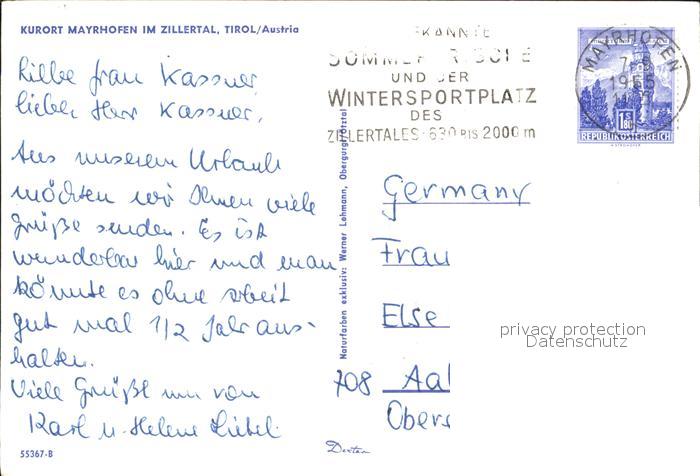 KURORT MAYRHOFEN IM ZILLERTAL, TIROL/Austria
Liebe Frau Kassner,
lieber Herr Kassner,
Aus unserem Urlaub
möchten wir Ihnen viele
Grüße senden. Es ist
wunderbar hier und man
könnte es ohne Arbeit
gut mal 1/2 Jahr aus-
halten.
Viele Grüße nun von
Karl u. Helene Liebel
55367-B
Naturfarben exklusiv: Werner Lohmann, Obergurgl/Ötztal
KANNTE
SOMMERFRISCHE
UND DER
WINTERSPORTPLATZ
DES
ZILLERTALES·630 BIS 2000 m
MAYRHOFEN
1.80
REPUBLIK ÖSTERREICH
Germany
Frau
Else
708 Aal
Obers
privacy protection
Datenschutz